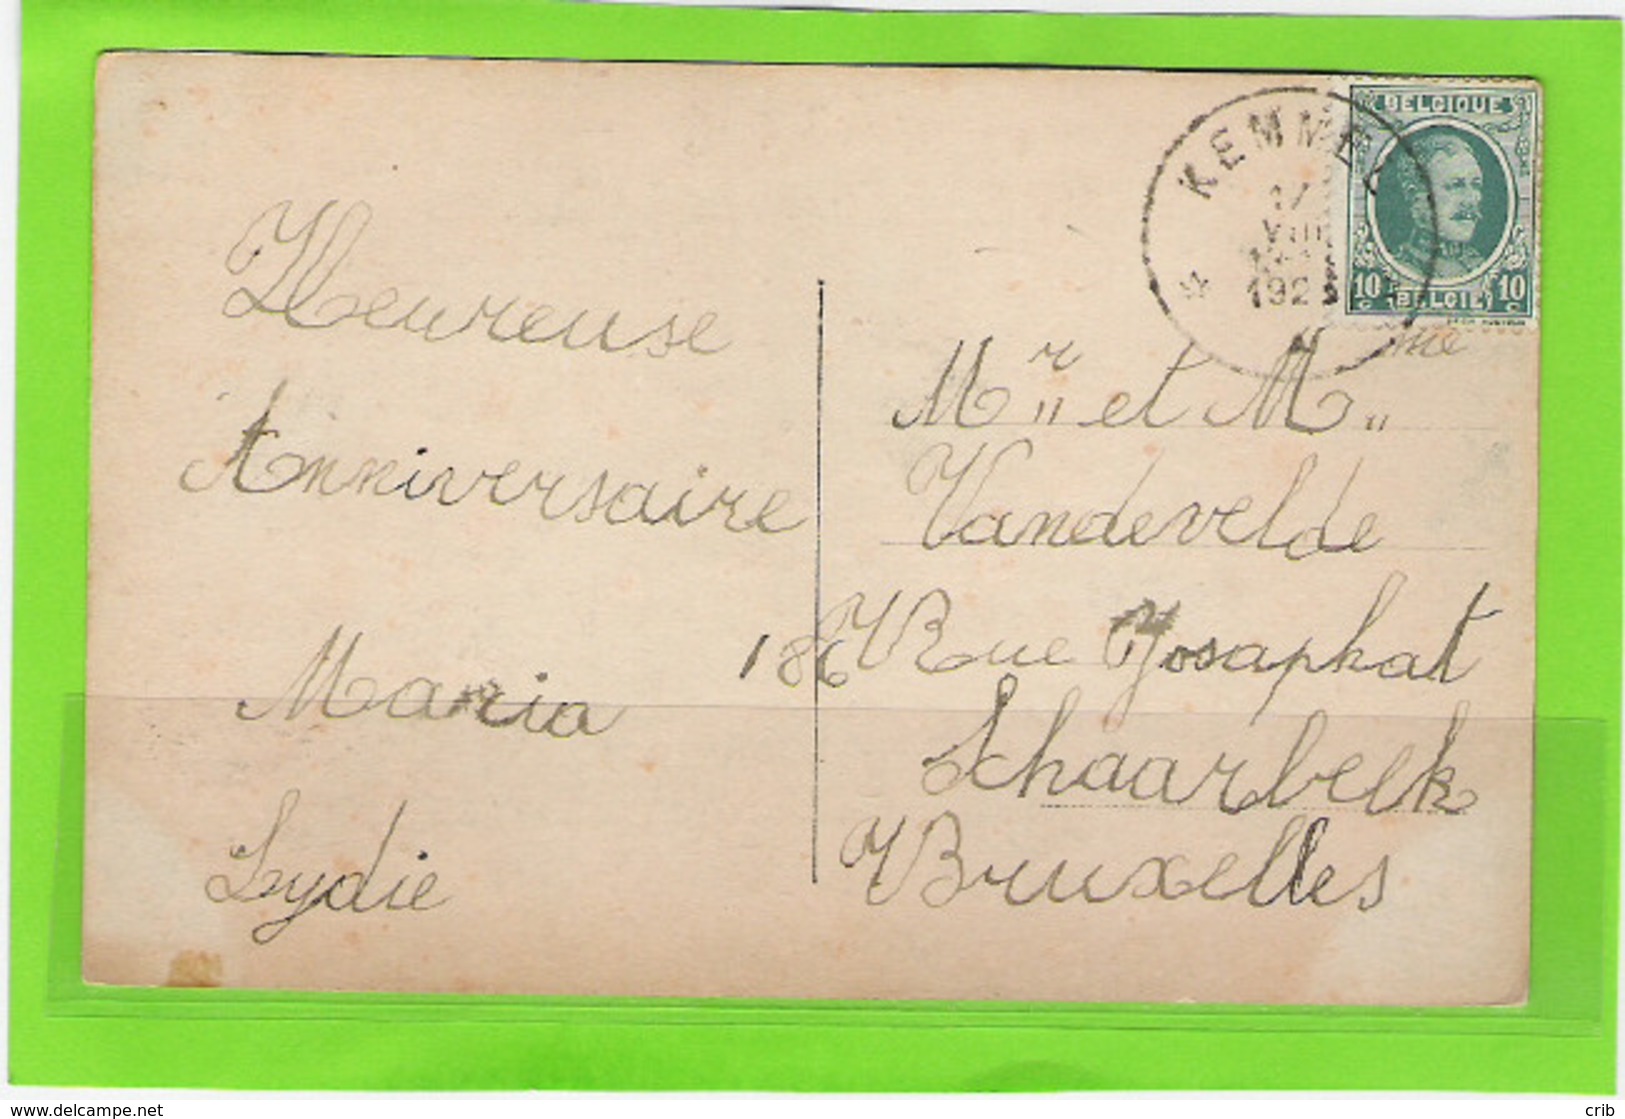 BELGIQUE
KEMMEL
VIII
192
10 c BELGIE 10 c
Heureuse
Anniversaire
Maria
Lydie
Mr et Mme
Vandevelde
186 Rue Josaphat
Schaarbeek
Bruxelles
www.delcampe.net
crib